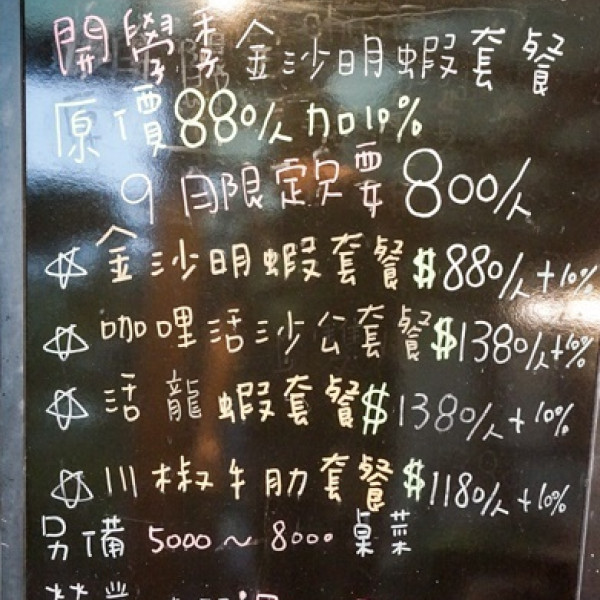 開學季金沙明蝦套餐
原價880/人加10%
9月限定只要800/人
☆金沙明蝦套餐$880/人+10%
☆咖哩活沙公套餐$1380/人+10%
☆活龍蝦套餐$1380/人+10%
☆川椒牛肋套餐$1180/人+10%
另備 5000~8000 桌菜